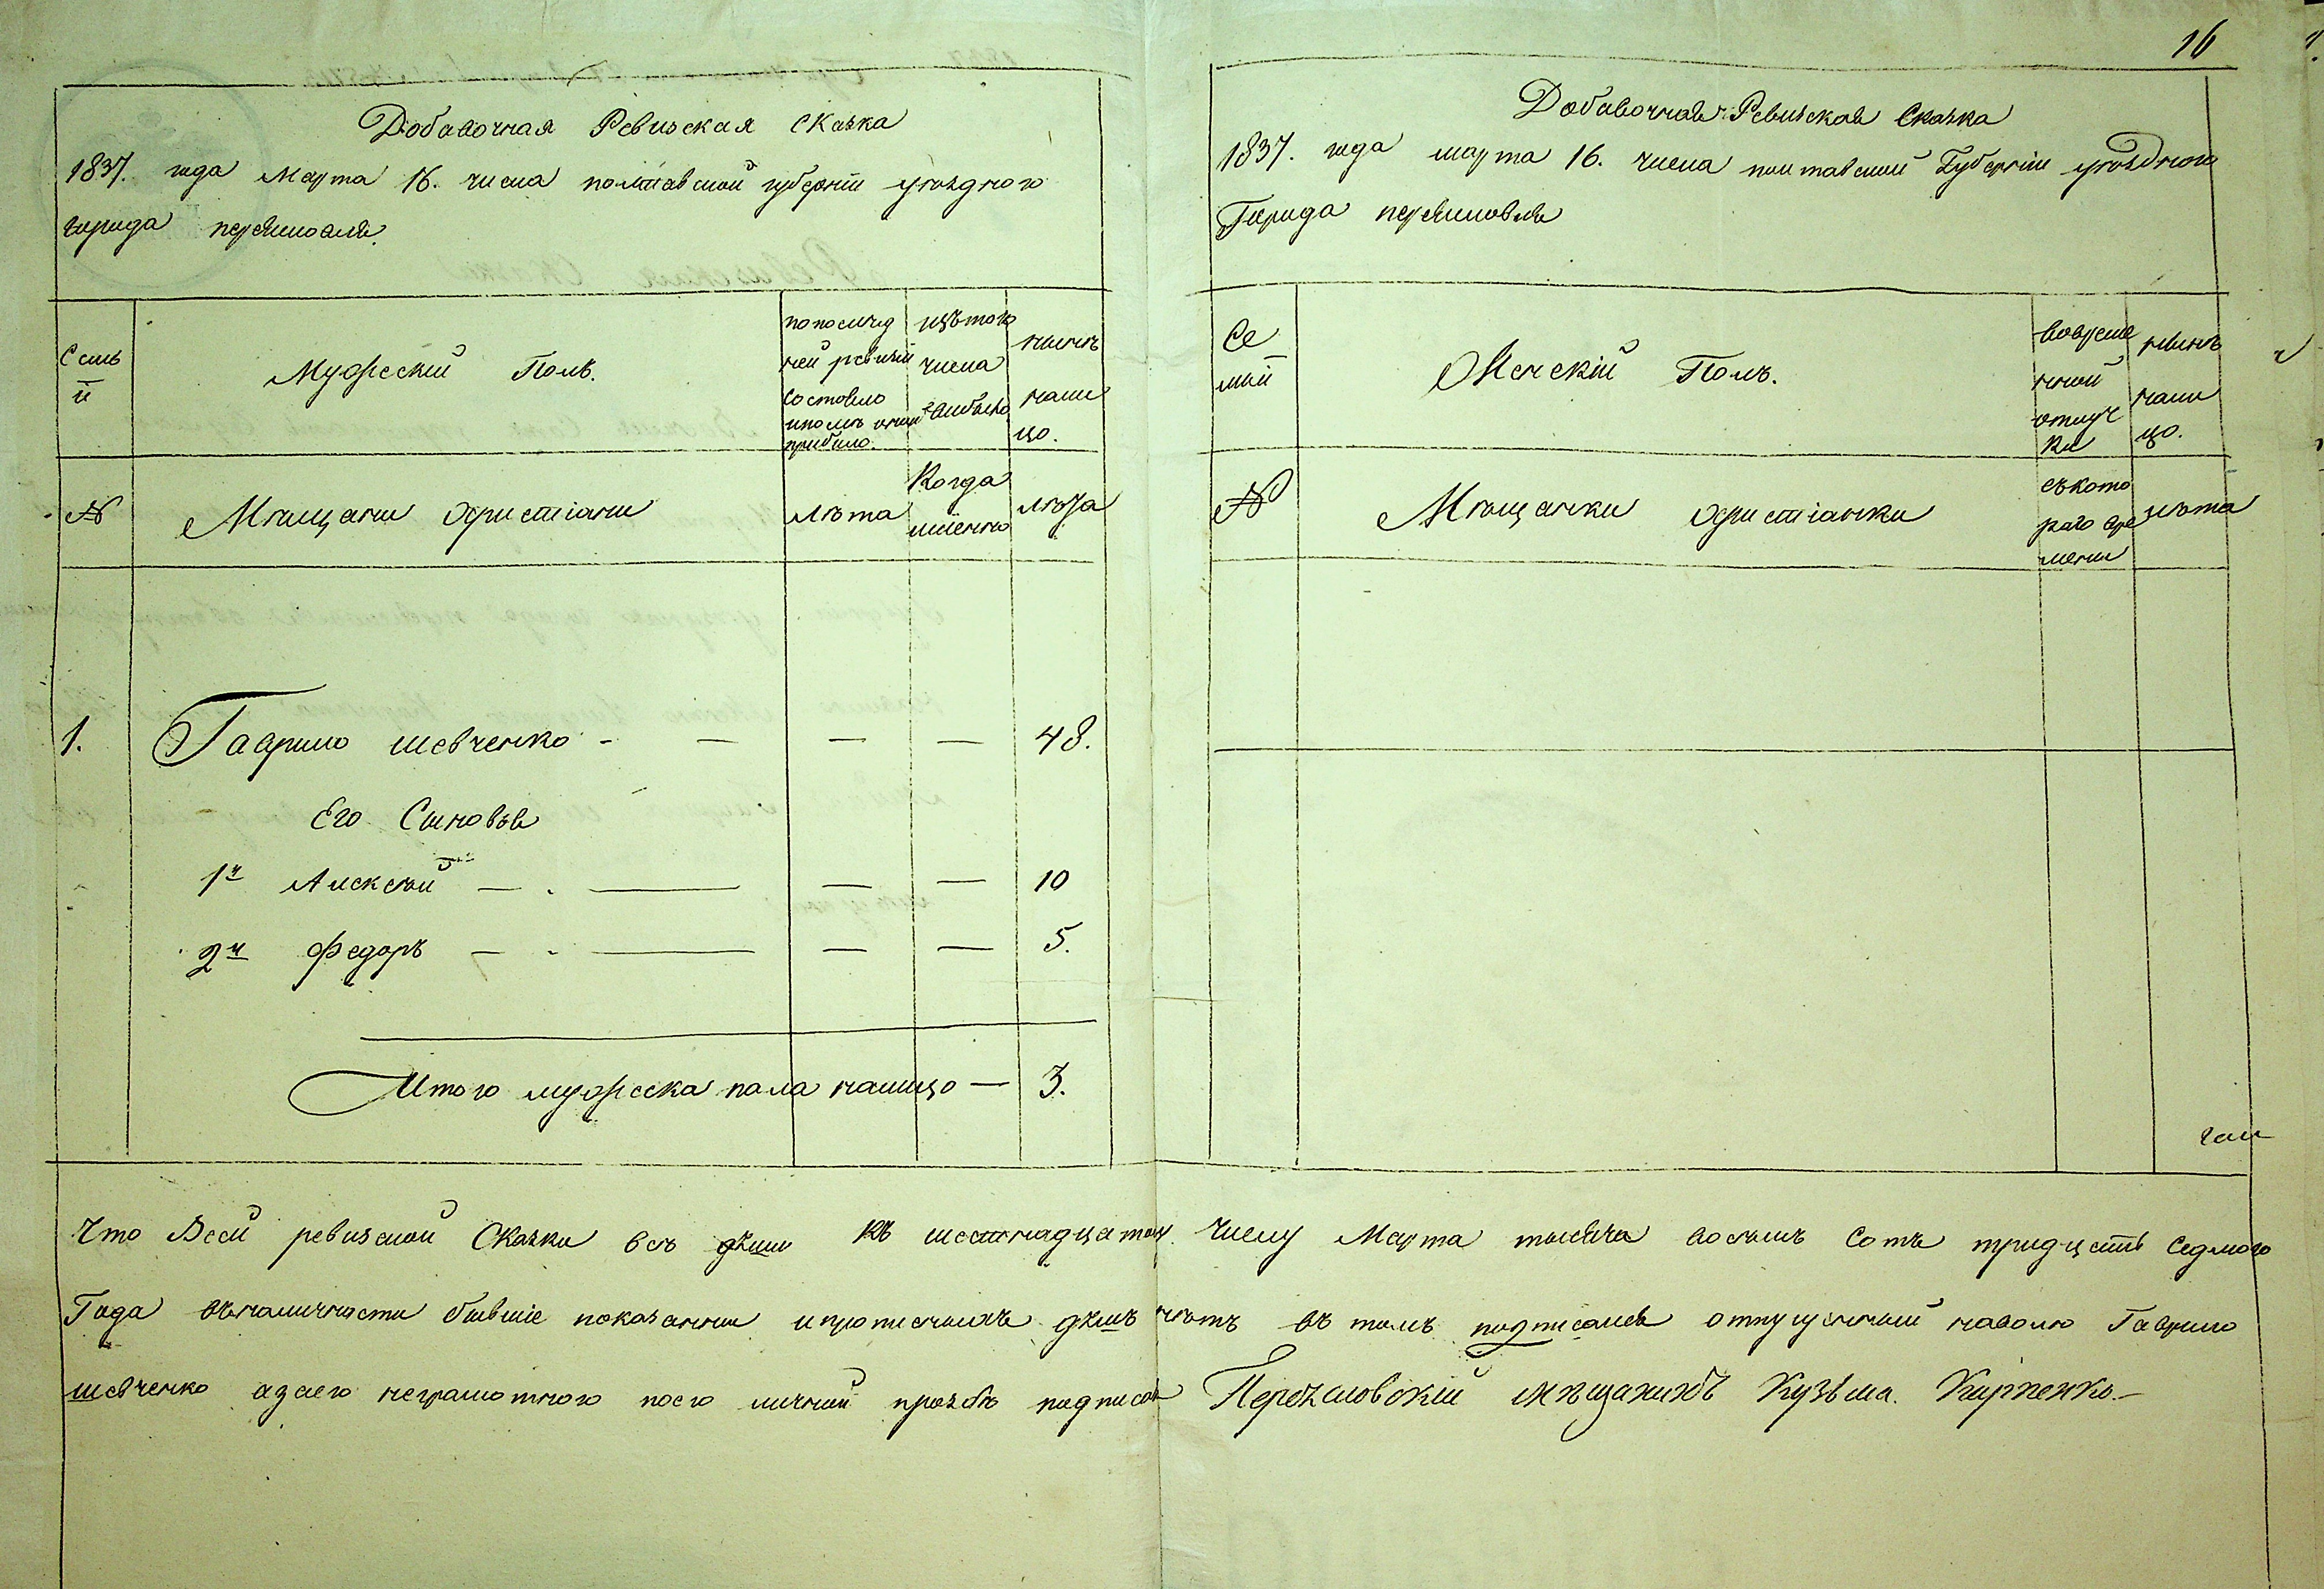 16
Добавочная Ревизская Сказка
1837. года Марта 16. числа полтавской губернии уѣзднаго
города переяслова.
Семь
и
Мужескій Полъ.
попослед
ней ревизіи
состояло
и после оной
прибыло.
изътого
числа
выбыло
нынѣ
нали
цо.
№
Мѣщани христіани
лѣта
Когда
имѣнно
лѣта
1. Гаврило шевченко - — — — 48.
Его Сыновья
1й Алексѣй — - — — — 10
2й Федоръ — - — — — 5.
Итого мужеска пола налицо — 3.
Добавочная Ревизская Сказка
1837. года марта 16. числа полтавской Губерніи уѣздного
Города переяславля
Се
мьи
Женскій Полъ.
вовреме
нной
отлуч
ки
нынѣ
нали
цо.
№
Мѣщанки христіанки
съкото
раго вре
мени
лѣта
Что Всей ревизской Сказки всѣ души къ шестнадцатому числу Марта тысяча восемь сотъ тридцать седмого
Года въналичности бывшіе показанни ипрописныхъ душъ нѣтъ въ томъ подписался отпущенный наволю Гаврило
шевченко азаего неграмотного поего личной прозбѣ подписалъ Переяславскій мѣщанинъ Кузьма Кирпенко.—